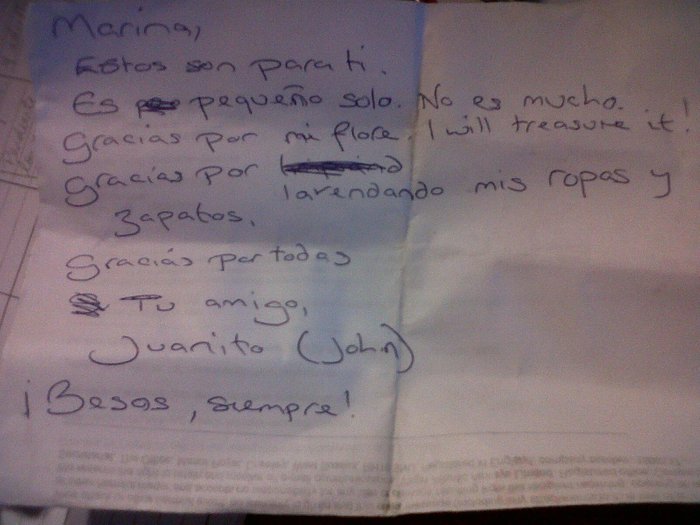 Marina,
Estos son para ti.
Es pequeño solo. No es mucho.
Gracias por mi flore. I will treasure it!
Gracias por
lavendando mis ropas y
zapatos.
Gracias por todas
Tu amigo,
Juanito (John)
¡Besos, siempre!